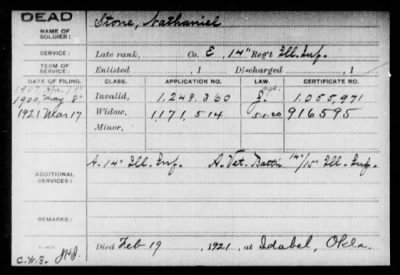 DEAD
NAME OF SOLDIER: Stone, Nathaniel
SERVICE: Late rank, Co. E, 14" Reg't Ill. Inf.
TERM OF SERVICE: Enlisted , 1 Discharged , 1
DATE OF FILING. CLASS. APPLICATION NO. LAW. CERTIFICATE NO.
1900, May 8" Invalid, 1,249,360 1,055,971
1921 Mar 17 Widow, 1171,514 916595
Minor,
ADDITIONAL SERVICES: A. 14" Ill. Inf. A. Vet. Battn 14"/15" Ill. Inf.
REMARKS:
Died Feb 19, 1921, at Idabel, Okla.